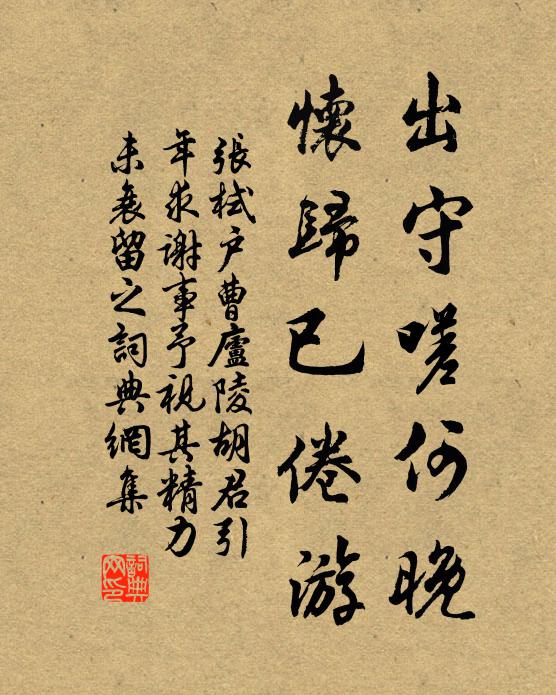 出守嗟何晚
懷歸已倦游
張栻戶曹廬陵胡君引
年求謝事予視其精力
未衰留之詞典網集
詞典网印